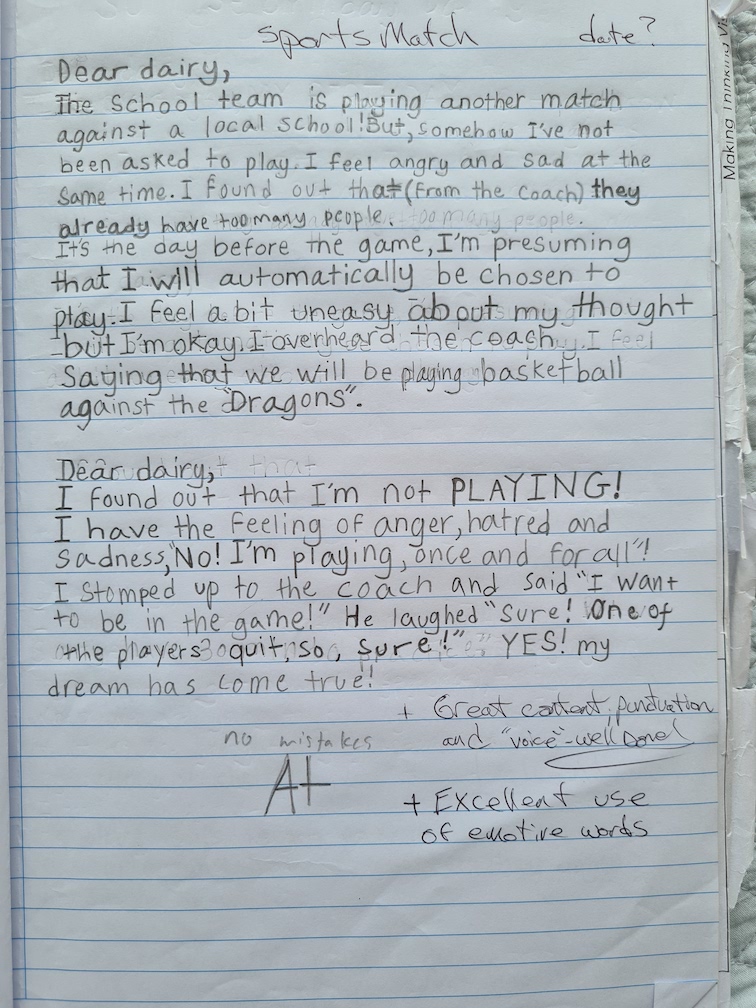 Sports Match date?
Dear dairy,
The School team is playing another match
against a local school! But, somehow I've not
been asked to play. I feel angry and sad at the
same time. I found out that (from the coach) they
already have too many people. too many people.
It's the day before the game, I'm presuming
that I will automatically be chosen to
play. I feel a bit uneasy about my thought
but I'm okay. I overheard the coach I feel
Saying that we will be playing basketball
against the "Dragons".
Dear dairy, that
I found out that I'm not PLAYING!
I have the feeling of anger, hatred and
sadness, "No! I'm playing, once and for all"!
I stomped up to the coach and said "I want
to be in the game!" He laughed "Sure! One of
the players quit, so, sure!" YES! my
dream has come true!
+ Great content, punctuation
and "voice" - well done!
no mistakes
A+
+ Excellent use
of emotive words
Making Thinking Vis